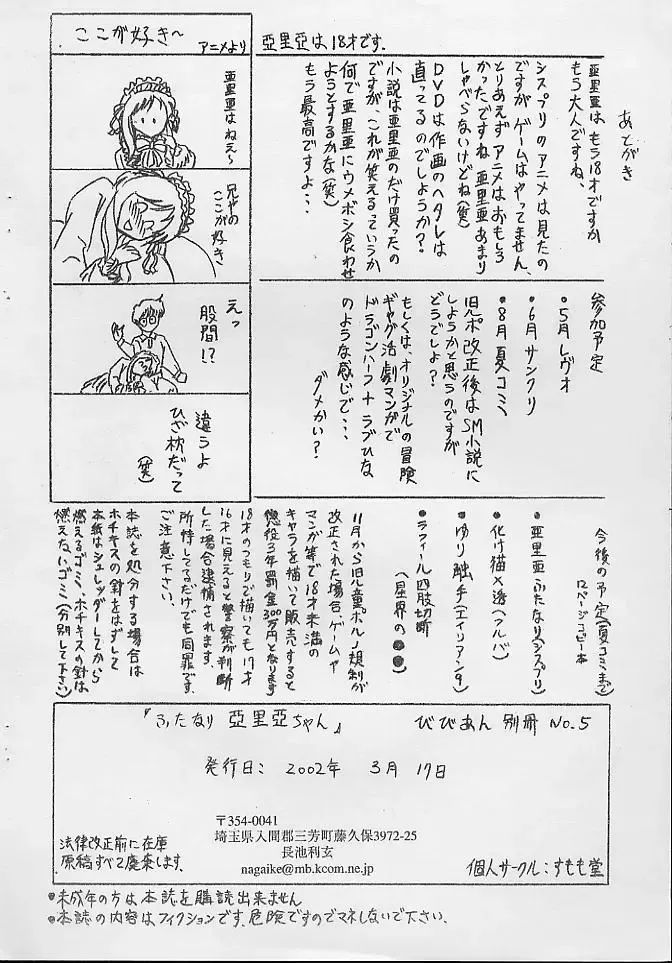 ここが好き〜
アニメより
亜里亜はねえ〜
兄やの
ここが好き
えっ
股間!?
違うよ
ひざ枕だって
(笑)
亜里亜は18才です.
あとがき
亜里亜は、もう18才ですか
もう大人ですね、
シスプリのアニメは見たの
ですが、ゲームはやってません、
とりあえずアニメはおもしろ
かったですね 亜里亜あまり
しゃべらないけどね(笑)
DVDは作画のヘタレは
直ってるのでしょうか?
小説は亜里亜のだけ買ったの
ですが、これが笑えるっていうか
何で亜里亜にウメボシ食わせ
ようとするかな(笑)
もう最高ですよ・・
参加予定
●5月レヴォ
●6月サンクリ
●8月夏コミ
児ポ改正後はSM小説に
しようかと思うのですが
どうでしょ?
もしくは、オリジナルの冒険
ギャグ活劇マンガで
ドラゴンハーフ+ラブひな
のような感じで・・・
ダメかい?
今後の予定(夏コミまで)
12ページコピー本
●亜里亜ふたなり(シスプリ)
●化け猫×透(フルバ)
●ゆり触手(エイリアン9)
●ラフィール四肢切断
(星界の●●)
11月から児童ポルノ規制が
改正された場合、ゲームや
マンガ等で18才未満の
キャラを描いて販売すると
懲役3年罰金300万円となります
18才のつもりで描いても17才
16才に見えると警察が判断
した場合逮捕されます.
所持してるだけでも同罪です、
ご注意下さい、
本誌を処分する場合は
ホチキスの針をはずして
本紙はシュレッダーしてから
燃えるゴミ、ホチキスの針は
燃えないゴミ(分別して下さい)
『ふたなり 亜里亜ちゃん』
びびあん 別冊 No.5
発行日: 2002年 3月 17日
〒354-0041
埼玉県入間郡三芳町藤久保3972-25
長池利玄
nagaike@mb.kcom.ne.jp
法律改正前に在庫
原稿すべて廃棄します.
個人サークル:すもも堂
●未成年の方は本誌を購読出来ません
●本誌の内容はフィクションです、危険ですのでマネしないで下さい.